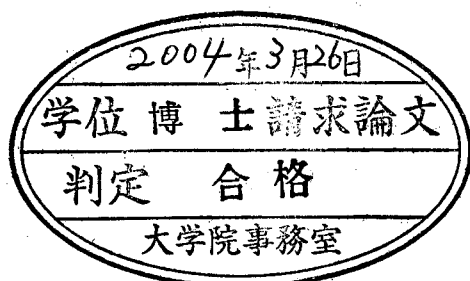 2004年3月26日
学位 博 士 請求論文
判定 合 格
大学院事務室